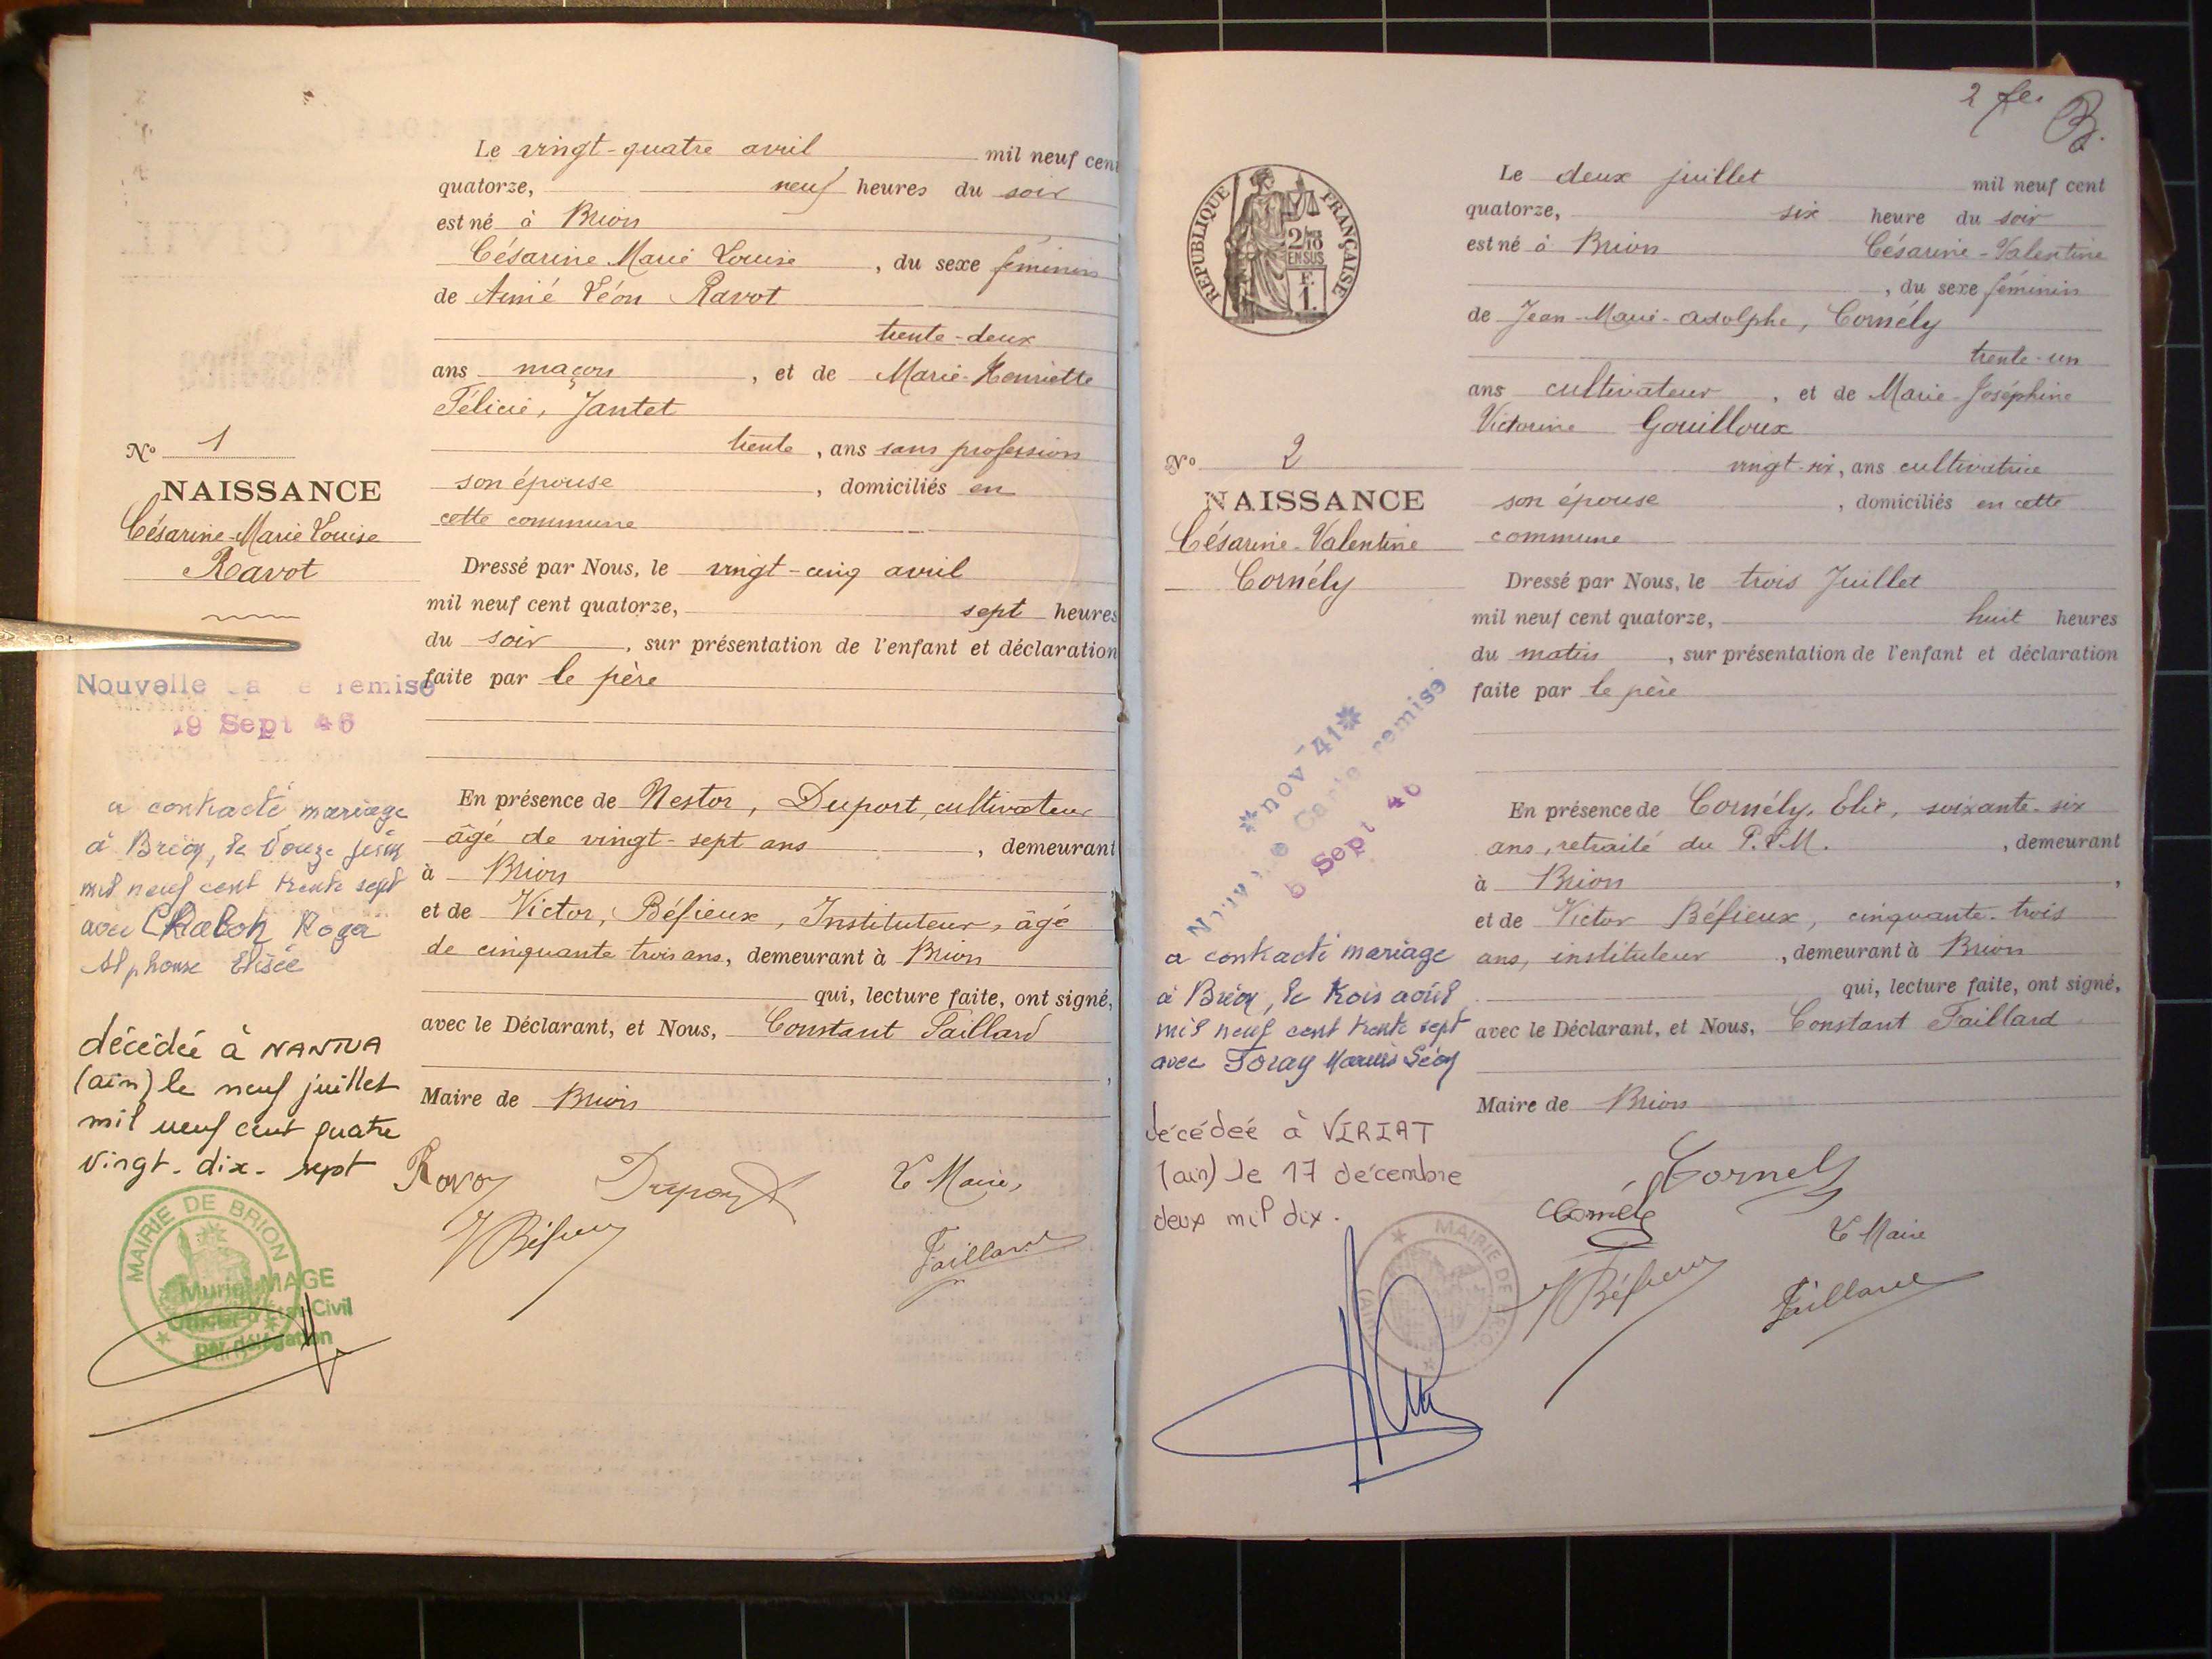 Le vingt-quatre avril mil neuf cent
quatorze, neuf heures du soir
est né à Brion
Césarine Marie Louise, du sexe féminin
de Aimé Léon Ravot
trente-deux
ans maçon, et de Marie-Henriette
Félicie, Jantet
trente, ans sans profession
son épouse, domiciliés en
cette commune
Dressé par Nous, le vingt-cinq avril
mil neuf cent quatorze, sept heures
du soir, sur présentation de l'enfant et déclaration
faite par le père
En présence de Nestor, Duport, cultivateur
âgé de vingt-sept ans, demeurant
à Brion
et de Victor, Béfieux, Instituteur, âgé
de cinquante trois ans, demeurant à Brion
qui, lecture faite, ont signé,
avec le Déclarant, et Nous, Constant Taillard
Maire de Brion
Le Maire,
Taillard
No 1
NAISSANCE
Césarine-Marie Louise
Ravot
Nouvelle remise
19 Sept 46
a contracté mariage
à Brion, le douze juin
mil neuf cent trente sept
avec Chabon Roger
Alphonse Elisée
décédée à NANTUA
(ain) le neuf juillet
mil neuf cent quatre
vingt-dix-sept
MAIRIE DE BRION
Muriel MAGE
Officier d'Etat-Civil
par délégation
2 fe.
B.
RÉPUBLIQUE FRANÇAISE
2/10
EN SUS
F.
1.
Le deux juillet mil neuf cent
quatorze, six heure du soir
est né à Brion Césarine-Valentine
, du sexe féminin
de Jean-Marie-Adolphe, Cornély
trente-un
ans cultivateur, et de Marie-Joséphine
Victorine Gouilloux
vingt-six, ans cultivatrice
son épouse, domiciliés en cette
commune
Dressé par Nous, le trois Juillet
mil neuf cent quatorze, huit heures
du matin, sur présentation de l'enfant et déclaration
faite par le père
En présence de Cornély, Elie, soixante-six
ans, retraité du P.L.M., demeurant
à Brion,
et de Victor Béfieux, cinquante-trois
ans, instituteur, demeurant à Brion
qui, lecture faite, ont signé,
avec le Déclarant, et Nous, Constant Taillard
Maire de Brion
Cornély
Le Maire
Taillard
No 2
NAISSANCE
Césarine-Valentine
Cornély
nov 41
Carte remise
Sept 46
a contracté mariage
à Brion, le trois août
mil neuf cent trente sept
avec Foray Marius Léon
décédée à VIRIAT
(ain) le 17 décembre
deux mil dix.
MAIRIE DE BRION
(AIN)